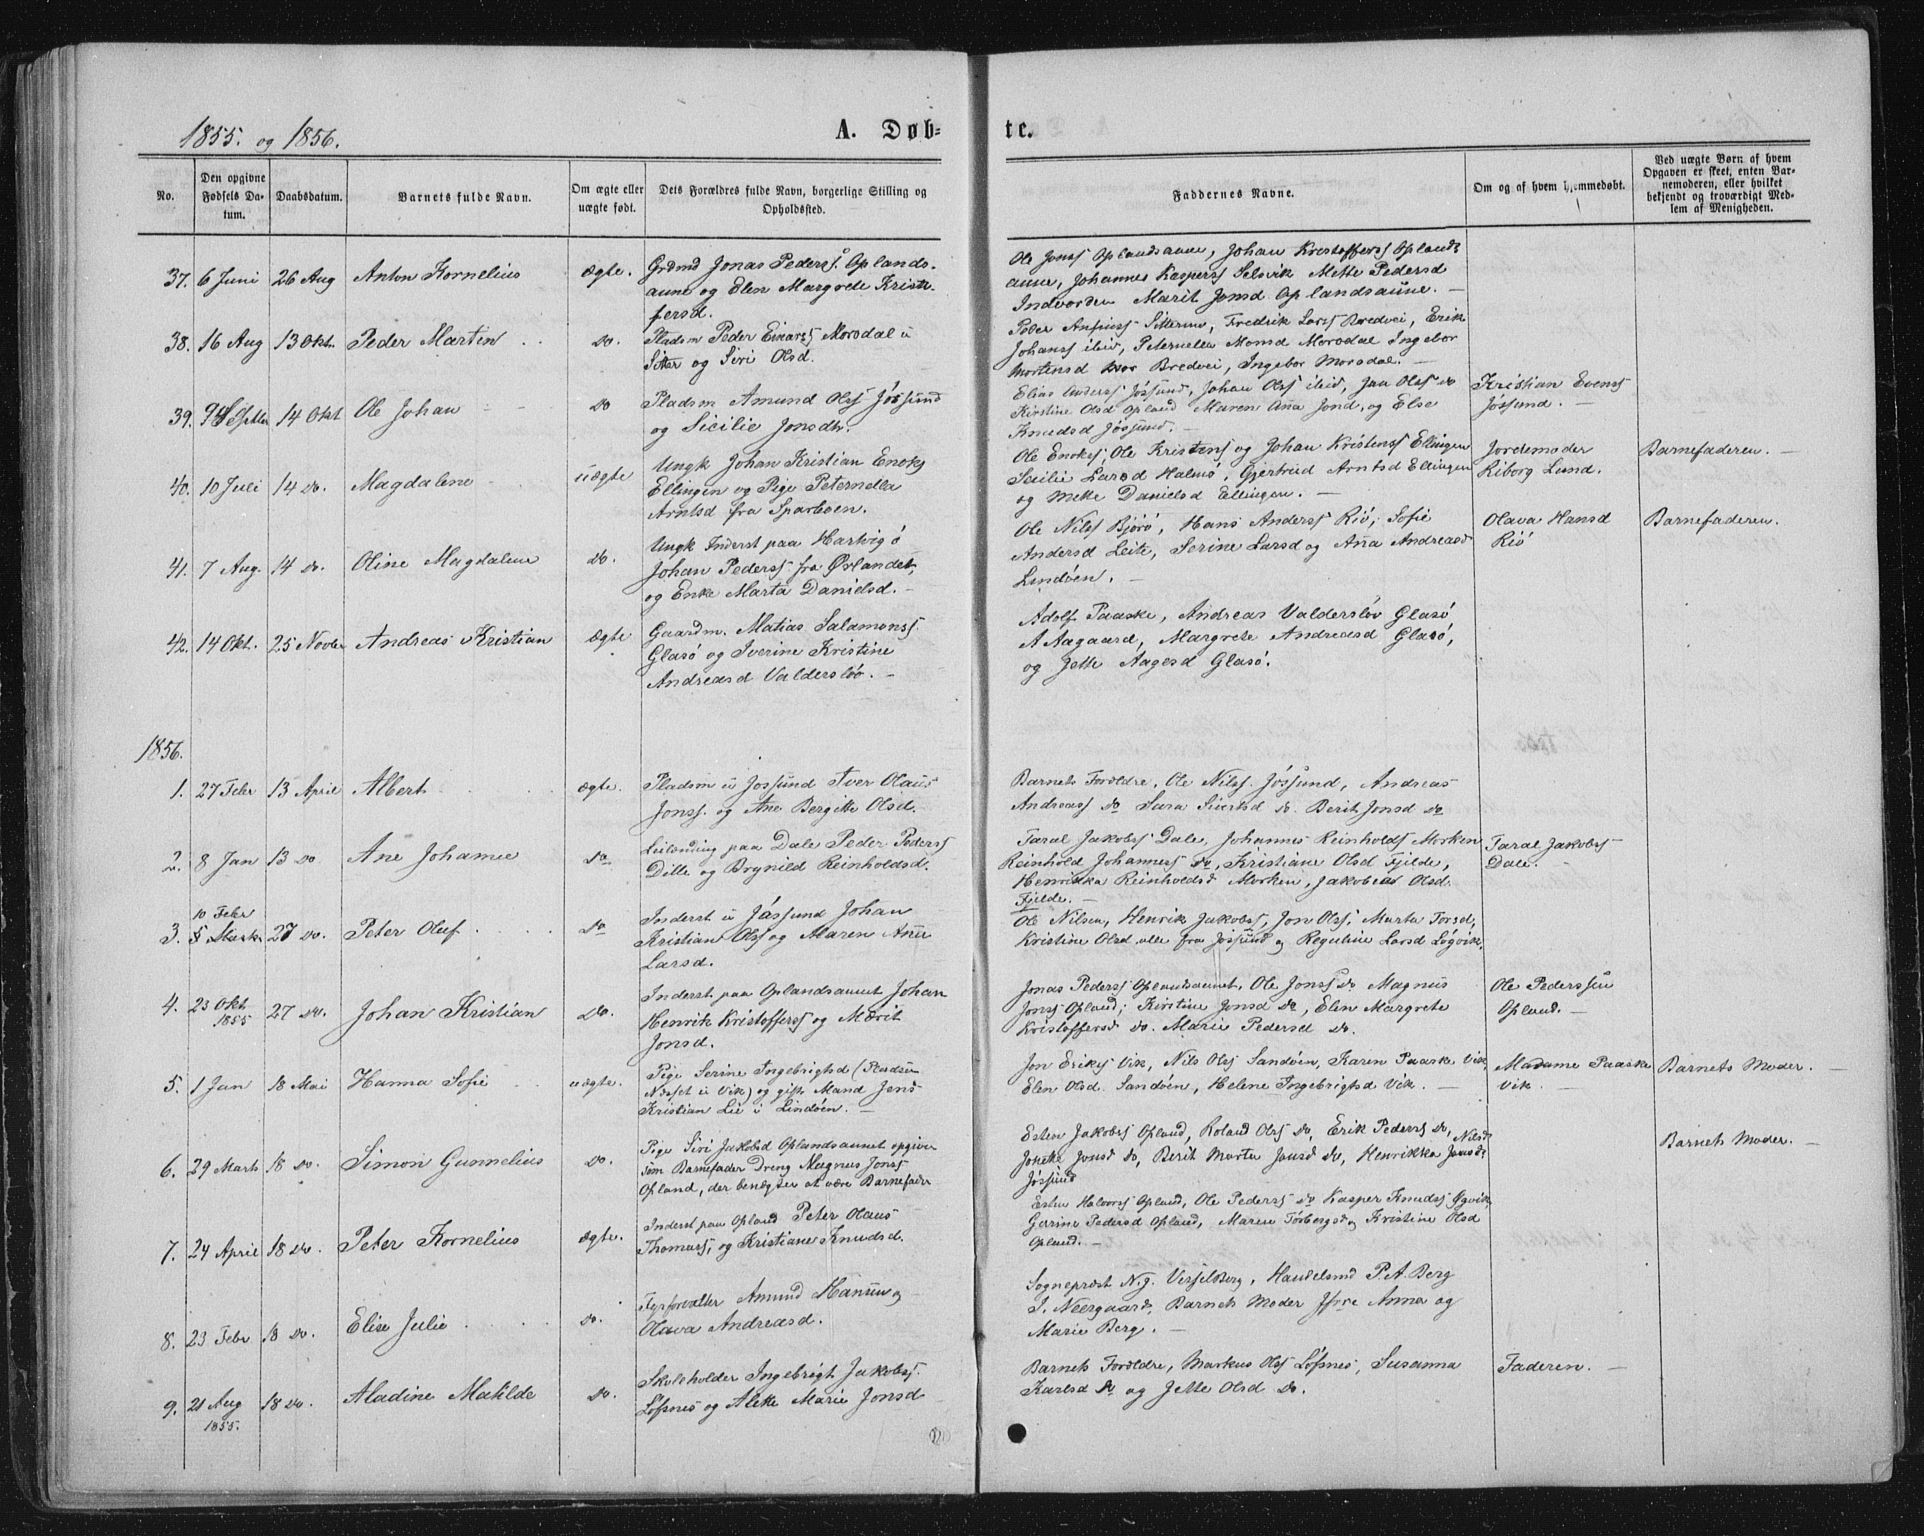 1855. og 1856.
A. Døb-
te.
No.
Den opgivne
Fødsels Da-
tum.
Daabsdatum.
Barnets fulde Navn.
Om ægte eller
uægte født.
Dets Forældres fulde Navn, borgerlige Stilling og
Opholdssted.
Faddernes Navne.
Om og af hvem hjemmedøbt.
Ved uægte Børn af hvem
Opgaven er skeet, enten Bar-
nemoderen, eller hvilket
bekjendt og troværdigt Med-
lem af Menigheden.
37. 6 Juni 26 Aug Anton Kornelius ægte.
Grdmd Jonas Pederss. Oplands-
aune og Elen Margrete Kristof-
fersd.
Ole Jonss Oplandsaune, Johan Kristofferss Oplands
aune, Johannes Kasperss Selsvik Mette Pedersd
Indvorden Marit Jonsd Oplandsaune. -
38. 16 Aug 13 Okt. Peder Martin do.
Pladsm Peder Einarss Morsdal u
Sitter og Siri Olsd.
Peder Anfinss Sitterm, Fredrik Larss Bredvei, Erik
Johanss ibid, Peternella Monsd Morsdal Ingebor
Mortensd Bredvei, Ingebor Morsdal. -
39. 9 Septbr 14 Okt Ole Johan do
Pladsm Amund Olss Jøssund
og Sicilie Jonsdtr.
Elias Anderss Jøssund, Johan Olss ibid, Jon Olss do
Kirstine Olsd Opland Maren Ana Jond, og Else
Knudsd Jøssund. -
Kristian Evenss
Jøssund. -
40. 10 Juli 14 do. Magdalene uægte
Ungk Johan Kristian Enoks
Ellingen og Pige Peternella
Arntsd fra Sparboen.
Ole Enokss, Ole Kristenss og Johan Kristenss Ellingen
Sicilie Larsd Halmø, Gjertrud Arntsd Ellingen
og Mette Danielsd Ellingen. -
Jordemoder
Riborg Lund.
Barnefaderen. -
41. 7 Aug. 14 do. Oline Magdalene do.
Ungk Inderst paa Hartvigø
Johan Pederss. fra Ørlandet,
og Enke Marta Danielsd. -
Ole Nilss Bjørø, Hans Anderss Riø, Sofie
Andersd Leite, Serine Larsd og Ana Andreasd
Lindøen. -
Olava Hansd
Riø
Barnefaderen.
42. 14 Okt. 25 Novbr Andreas Kristian ægte
Gaardm. Matias Salamonss
Glasø og Iverine Kristine
Andreasd Valdersløv. -
Adolf Paaske, Andreas Valdersløv Glasø,
A Aagaard, Margrete Andreasd Glasø,
og Jette Aagesd Glasø.
1856.
1. 27 Febr 13 April Albert ægte.
Pladsm u Jøssund Iver Olaus
Jonss. og Ane Bergitte Olsd.
Barnets Forældre, Ole Nilss. Jøssund, Andreas
Andreass do Sara Sivertsd do. Berit Jonsd do
2. 8 Jan 13 do Ane Johanne do
Leilending paa Dale Peder Pederss
Dille og Brynild Reinholdsd.
Taral Jakobss Dale, Johannes Reinholds Morken
Reinhold Johanness do, Kristiane Olsd Fjelde,
Henrikka Reinholdsd Morken, Jakobea Olsd
Fjelde. -
Taral Jakobss
Dale. -
3. 10 Febr
5 Marts 27 do. Peter Oluf do
Inderst u Jøssund Johan
Kristian Olss og Maren Anne
Larsd.
Ole Nilsen, Henrik Jakobss, Jon Olss, Marta Torsd,
Kristine Olsd alle fra Jøssund og Reguline Larsd Løgvik.
4. 23 Okt
1855 27 do. Johan Kristian do.
Inderst paa Oplandsaunet Johan
Henrik Kristofferss og Marit
Jonsd.
Jonas Pederss Oplandsaunet, Ole Jonss do Magnus
Jonss Opland; Kirstine Jonsd do, Elen Margrete
Kristoffersd do. Marie Pedersd do.
Ole Pederssen
Opland. -
5. 1 Jan 18 Mai Hanna Sofie uægte.
Pige Serine Ingebrigtsd (Pladsen
Næsset u Vik) og gift Mand Jens
Kristian Lie i Lindøen. -
Jon Erikss Vik, Nils Olss Sandøen, Karen Paaske Vik
Elen Olsd. Sandøen, Helene Ingebrigtsd Vik. -
Madame Paaske
Vik. -
Barnets Moder. -
6. 29 Marts 18 do. Simon Gunnelius do.
Pige Siri Jakobsd Oplandsaunet opgiver
som Barnefader Dreng Magnus Jonss
Opland, der benegter at være Barnefader
Esten Jakobss Opland, Roland Olss do, Erik Pederss do,
Jonette Jonsd do, Berit Marta Jonsd do, Henrikka Nilsd
Jøssund
Barnets Moder. -
7. 24 April 18 do. Peter Kornelius ægte.
Inderst paa Opland Peter Olaus
Thomass, og Kristiane Knudsd.
Esten Halvorss Opland, Ole Pederss do Kasper Knudss Øgvik
Gurine Pedersd Opland, Maren Torbergsd og Kristine Olsd
Opland. -
8. 23 Febr 18 do. Elise Julie do.
Amund Hansen og
Olava Andreasd.
Sogneprest N.g. Berg, Handelsmd P. A. Berg
I. Neergaard, Barnets Moder Jfrre Anna og
Marie Berg. -
9. 21 Aug
1855. 18 do. Aladine Matilde do.
Skoleholder Ingebrigt Jakobs.
Løfsnes og Aleke Marie Jonsd
Barnets Forældre, Markus Olss Løfsnes, Susanna
Karlsd do og Jette Olsd do.
Faderen. -